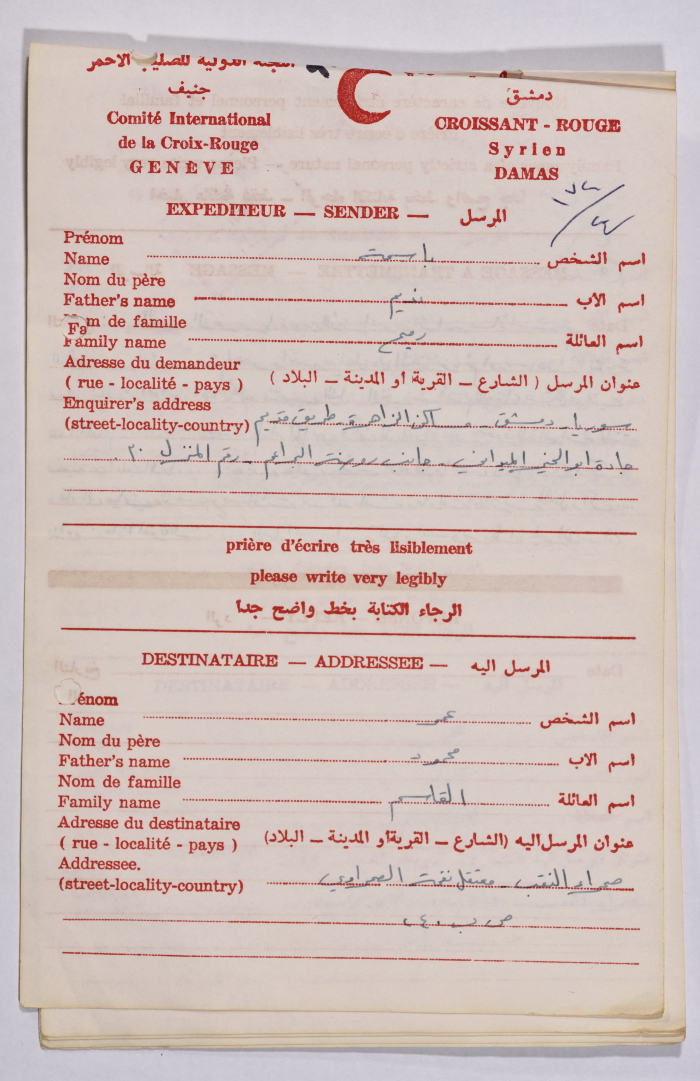 اللجنة الدولية للصليب الاحمر
جنيف
دمشق
Comité International
de la Croix-Rouge
GENÈVE
CROISSANT - ROUGE
Syrien
DAMAS
EXPEDITEUR — SENDER — المرسل
Prénom
Name باسمة اسم الشخص
Nom du père
Father's name نديم اسم الاب
m de famille
Fa
Family name اسم العائلة
Adresse du demandeur
( rue - localité - pays ) عنوان المرسل ( الشارع ــ القرية او المدينة ــ البلاد )
Enquirer's address
(street-locality-country) سوريا - دمشق - مساكن الزاهرة طريق قديم
جادة ابو الحنن الميداني - جانب روضة البراعم - رقم المنزل ٣٠
prière d'écrire très lisiblement
please write very legibly
الرجاء الكتابة بخط واضح جدا
DESTINATAIRE — ADDRESSEE — المرسل اليه
énom
Name عمر اسم الشخص
Nom du père
Father's name محمود اسم الاب
Nom de famille
Family name القاسم اسم العائلة
Adresse du destinataire
( rue - localité - pays ) عنوان المرسل اليه (الشارع ــ القريةاو المدينة ــ البلاد)
Addressee.
(street-locality-country) صحراء النقب - معتقل نفحة الصحراوي
ص ب